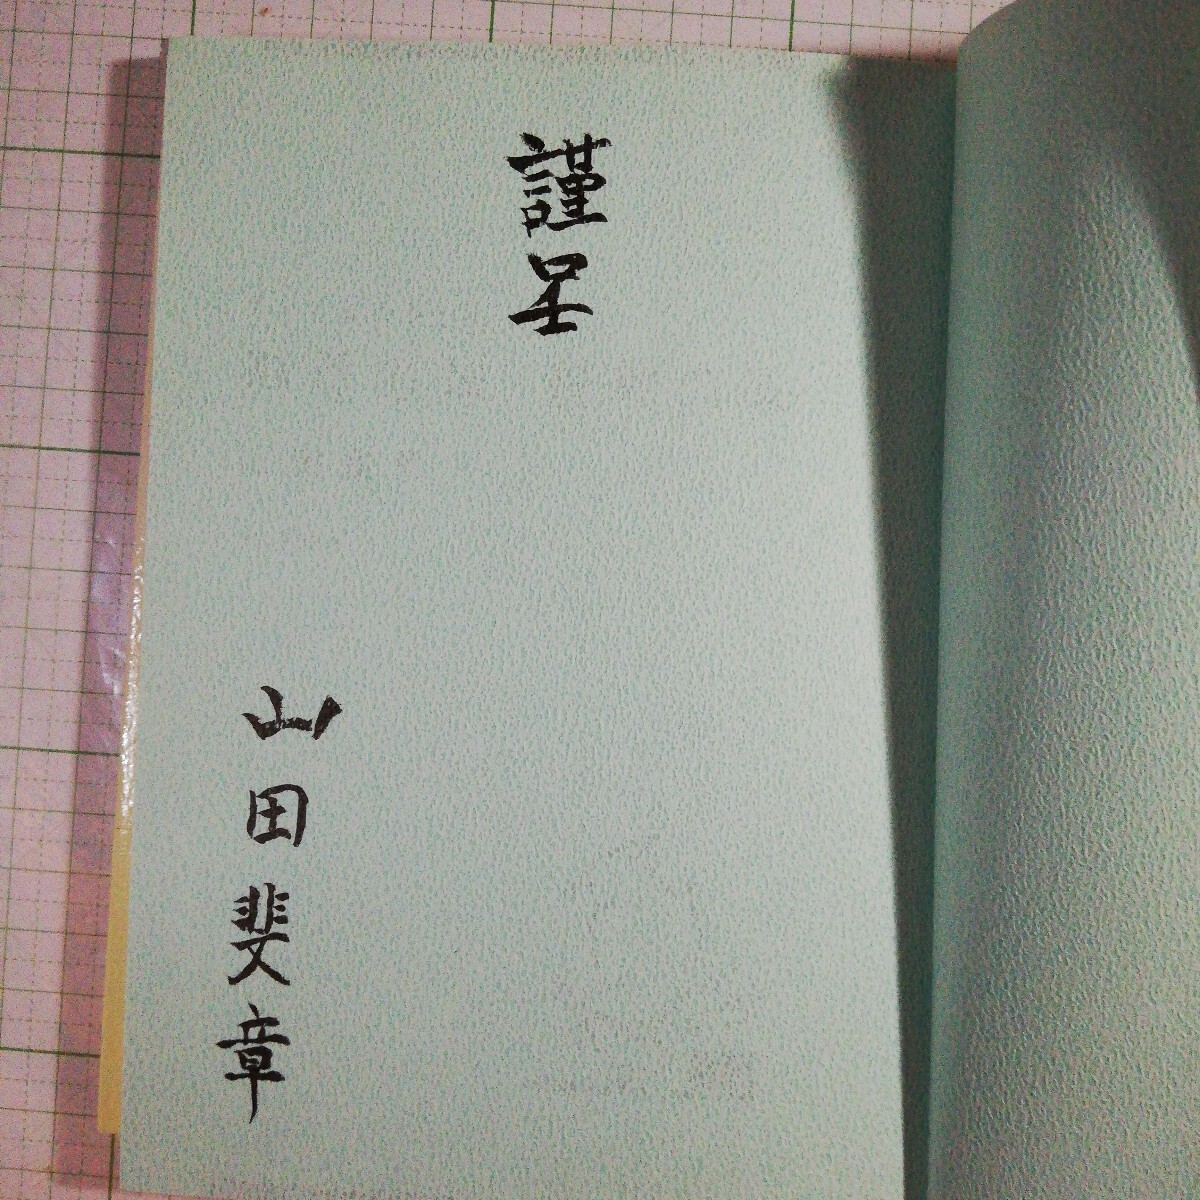 謹呈
山田斐章